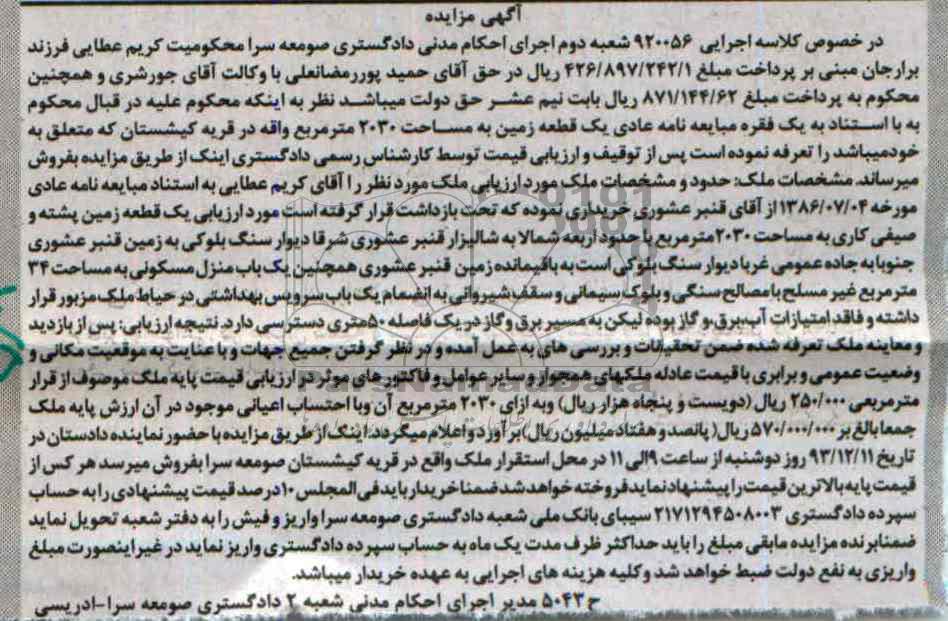 آگهی مزایده
در خصوص کلاسه اجرایی ۹۲۰۰۵۶ شعبه دوم اجرای احکام مدنی دادگستری صومعه سرا محکومیت کریم عطایی فرزند
برارجان مبنی بر پرداخت مبلغ ۴۲۶/۸۹۷/۲۴۲/۱ ریال در حق آقای حمید پوررمضانعلی با وکالت آقای جورشری و همچنین
محکوم به پرداخت مبلغ ۸۷۱/۱۴۴/۶۲ ریال بابت نیم عشر حق دولت میباشد نظر به اینکه محکوم علیه در قبال محکوم
به با استناد به یک فقره مبایعه نامه عادی یک قطعه زمین به مساحت ۲۰۳۰ مترمربع واقه در قریه کیشستان که متعلق به
خودمیباشد را تعرفه نموده است پس از توقیف و ارزیابی قیمت توسط کارشناس رسمی دادگستری اینک از طریق مزایده بفروش
میرساند. مشخصات ملک: حدود و مشخصات ملک مورد ارزیابی ملک مورد نظر را آقای کریم عطایی به استناد مبایعه نامه عادی
مورخه ۱۳۸۶/۰۷/۰۴ از آقای قنبر عشوری خریداری نموده که تحت بازداشت قرار گرفته است مورد ارزیابی یک قطعه زمین پشته و
صیفی کاری به مساحت ۲۰۳۰مترمربع با حدود اربعه شمالا به شالیزار قنبر عشوری شرقا دیوار سنگ بلوکی به زمین قنبر عشوری
جنوبا به جاده عمومی غربا دیوار سنگ بلوکی است به باقیمانده زمین قنبر عشوری همچنین یک باب منزل مسکونی به مساحت ۳۴
مترمربع غیر مسلح با مصالح سنگی و بلوک سیمانی و سقف شیروانی به انضمام یک باب سرویس بهداشتی در حیاط ملک مزبور قرار
داشته و فاقد امتیازات آب،برق،و گاز بوده لیکن به مسیر برق و گاز در یک فاصله ۵۰متری دسترسی دارد. نتیجه ارزیابی: پس از بازدید
و معاینه ملک تعرفه شده ضمن تحقیقات و بررسی های به عمل آمده و در نظر گرفتن جمیع جهات و با عنایت به موقعیت مکانی و
وضعیت عمومی و برابری با قیمت عادله ملکهای همجوار و سایر عوامل و فاکتورهای موثر در ارزیابی قیمت پایه ملک موصوف از قرار
مترمربعی ۲۵۰/۰۰۰ ریال (دویست و پنجاه هزار ریال) وبه ازای ۲۰۳۰ مترمربع آن وبا احتساب اعیانی موجود در آن ارزش پایه ملک
جمعا بالغ بر ۵۷۰/۰۰۰/۰۰۰ ریال( پانصد و هفتاد میلیون ریال) برآورد و اعلام میگردد. اینک از طریق مزایده با حضور نماینده دادستان در
تاریخ ۹۳/۱۲/۱۱ روز دوشنبه از ساعت ۹الی ۱۱ در محل استقرار ملک واقع در قریه کیشستان صومعه سرا بفروش میرسد هر کس از
قیمت پایه بالاترین قیمت را پیشنهاد نماید فروخته خواهد شد ضمنا خریدار باید فی المجلس ۱۰درصد قیمت پیشنهادی را به حساب
سپرده دادگستری ۲۱۷۱۲۹۴۵۰۸۰۰۳ سیبای بانک ملی شعبه دادگستری صومعه سرا واریز و فیش را به دفتر شعبه تحویل نماید
ضمنا برنده مزایده مابقی مبلغ را باید حداکثر ظرف مدت یک ماه به حساب سپرده دادگستری واریز نماید در غیر اینصورت مبلغ
واریزی به نفع دولت ضبط خواهد شد وکلیه هزینه های اجرایی به عهده خریدار میباشد.
ح ۵۰۴۳ مدیر اجرای احکام مدنی شعبه ۲ دادگستری صومعه سرا-ادریسی